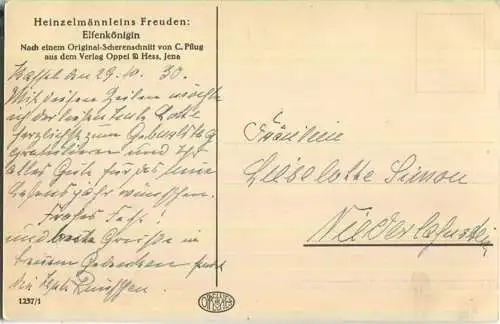 Heinzelmännleins Freuden:
Elfenkönigin
Nach einem Original-Scherenschnitt von C. Pflug
aus dem Verlag Oppel & Hess, Jena
Kassel den 29.10. 30.
Mit diesen Zeilen möchte
ich der lieben Lotte
herzlichst zum Geburtstag
gratulieren und
alles Gute für das neue
Lebensjahr wünschen.
Frohes Fest!
und beste Grüße in
treuem Gedenken
die
1257/1
Fräulein
Liselotte Simon
Niederlahnstein